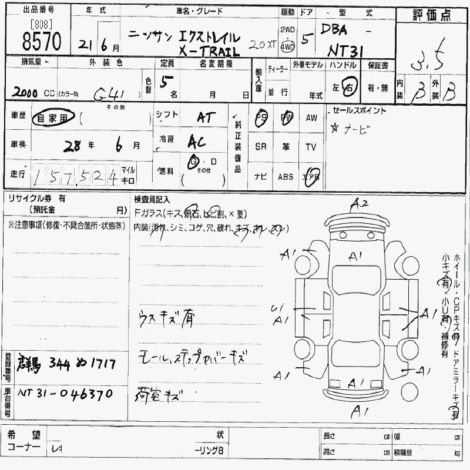 出品番号 年式 車名・グレード 駆動 ドア 型式 評価点
[808]
8570 21年 6月 ニッサン エクストレイル X-TRAIL 20XT 2WD 4WD 5 DBA- NT31 3.5
排気量 外装色 定員 名変期限 輸入車 ディーラー 外車モデル ハンドル 保証書
2000 CC (カラーNo. G41 色替 5名 年 月 並行 年 左・右 有・無 内装 B 外装 B
車歴 自家用 その他 シフト AT 純正装備品 PS PW AW セールスポイント
☆ ナビ
車検 28年 6月 冷房 AC SR 革 TV
走行 157,524 マイル キロ 燃料 G・D (その他) ナビ ABS エアB
リサイクル券 有
(預託金 )
検査員記入
Fガラス(キズ、飛石、ヒビ割、×要)
※注意事項(修復・不具合箇所・状態等)
内装(汚れ、シミ、コゲ、穴、破れ、キズ
A2
A1 A1 A1
ウスキズ有 U1 A1 A1
モール、ステップカバーキズ
A1 A1 A1
荷室キズ A1 A1
ホイール・CPキズ有 ドアミラーキズ
小キズ有・小U有・補修有
登録番号 群馬 344 ぬ 1717
車台番号 NT31-046370
希望コーナー レキ 状 ーリングB
長さ cm 幅 cm
高さ cm 積載量 kg